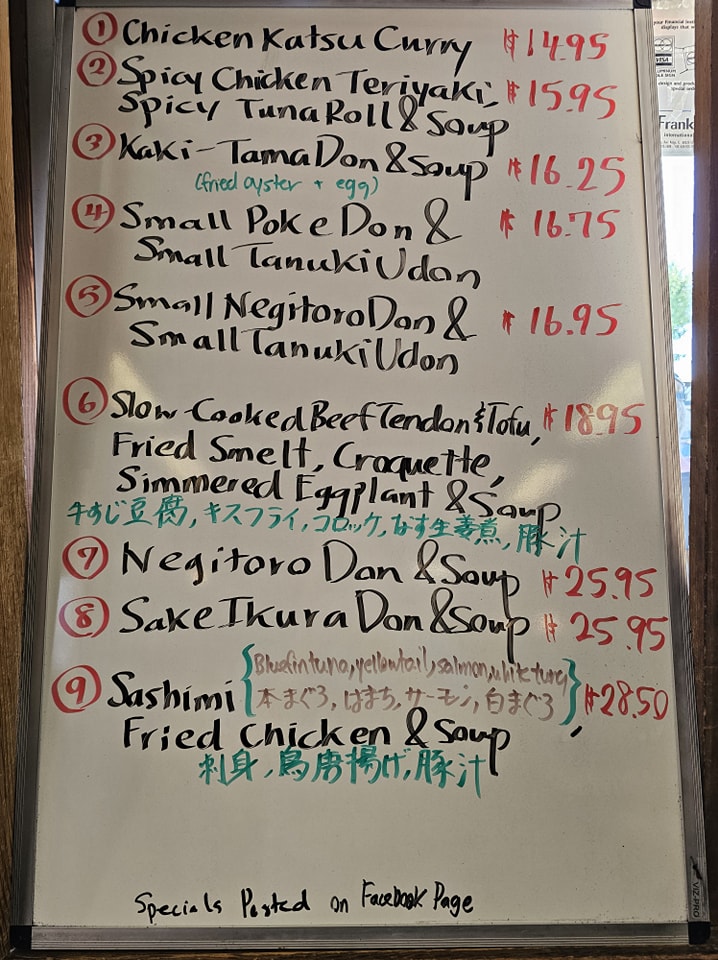 ① Chicken Katsu Curry $14.95
② Spicy Chicken Teriyaki, $15.95
Spicy Tuna Roll & Soup
③ Kaki-Tama Don & Soup $16.25
(fried oyster + egg)
④ Small Poke Don & $16.75
Small Tanuki Udon
⑤ Small Negitoro Don & $16.95
Small Tanuki Udon
⑥ Slow-Cooked Beef Tendon & Tofu, $18.95
Fried Smelt, Croquette,
Simmered Eggplant & Soup
牛すじ豆腐, キスフライ, コロッケ, なす生姜煮, 豚汁
⑦ Negitoro Don & Soup $25.95
⑧ Sake Ikura Don & Soup $25.95
⑨ Sashimi {Bluefin tuna, yellowtail, salmon, white tuna
本まぐろ, はまち, サーモン, 白まぐろ}, $28.50
Fried Chicken & Soup
刺身, 鳥唐揚げ, 豚汁
Specials Posted on Facebook Page
VIZ-PRO
your financial
displays that
VISA
Frank
international